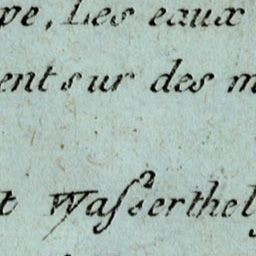 pe, Les eaux
ent sur des m
t Wasserthel